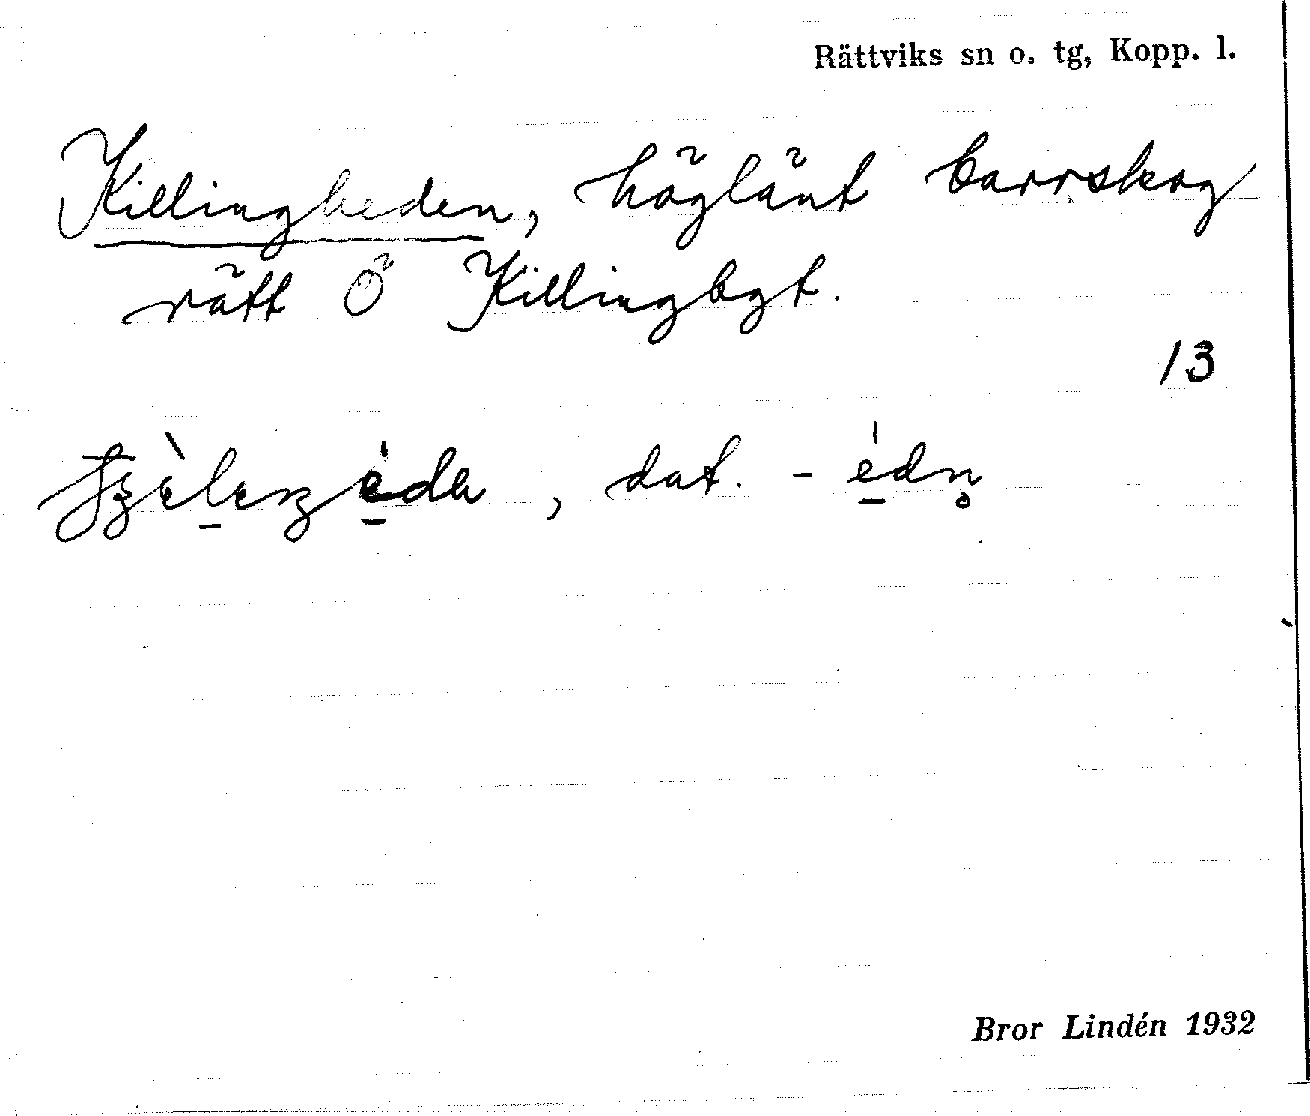 Rättviks sn o. tg, Kopp. l.
Killingheden, högländt barrskog
rätt Ö Killingbgt.
13
, dat. - édn̥
Bror Lindén 1932